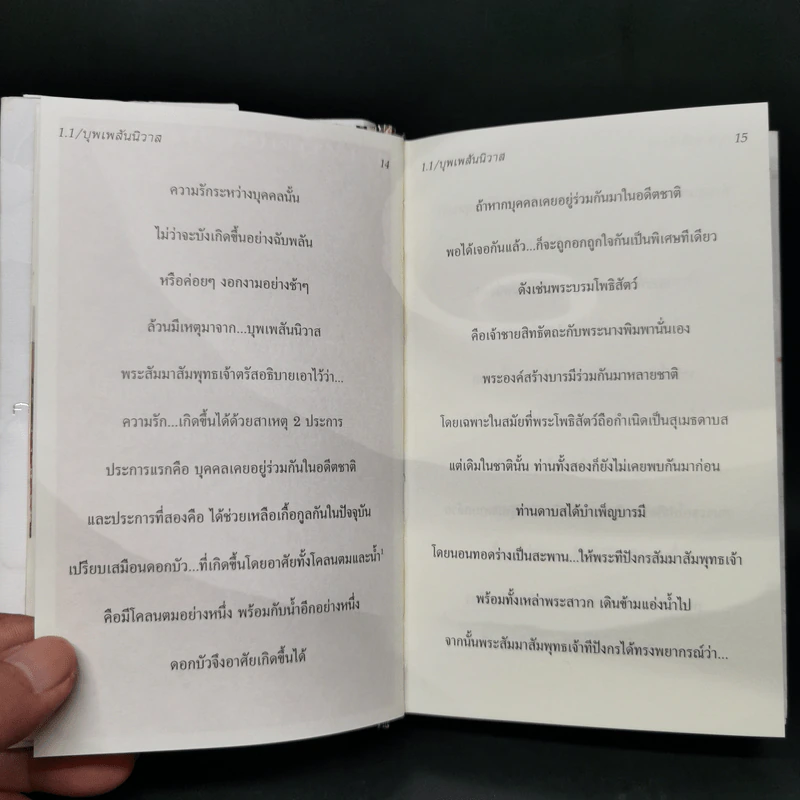 1.1/บุพเพสันนิวาส
14
ความรักระหว่างบุคคลนั้น
ไม่ว่าจะบังเกิดขึ้นอย่างฉับพลัน
หรือค่อยๆ งอกงามอย่างช้าๆ
ล้วนมีเหตุมาจาก...บุพเพสันนิวาส
พระสัมมาสัมพุทธเจ้าตรัสอธิบายเอาไว้ว่า...
ความรัก...เกิดขึ้นได้ด้วยสาเหตุ 2 ประการ
ประการแรกคือ บุคคลเคยอยู่ร่วมกันในอดีตชาติ
และประการที่สองคือ ได้ช่วยเหลือเกื้อกูลกันในปัจจุบัน
เปรียบเสมือนดอกบัว...ที่เกิดขึ้นโดยอาศัยทั้งโคลนตมและน้ำ¹
คือมีโคลนตมอย่างหนึ่ง พร้อมกับน้ำอีกอย่างหนึ่ง
ดอกบัวจึงอาศัยเกิดขึ้นได้
1.1/บุพเพสันนิวาส
15
ถ้าหากบุคคลเคยอยู่ร่วมกันมาในอดีตชาติ
พอได้เจอกันแล้ว...ก็จะถูกอกถูกใจกันเป็นพิเศษทีเดียว
ดังเช่นพระบรมโพธิสัตว์
คือเจ้าชายสิทธัตถะกับพระนางพิมพานั่นเอง
พระองค์สร้างบารมีร่วมกันมาหลายชาติ
โดยเฉพาะในสมัยที่พระโพธิสัตว์ถือกำเนิดเป็นสุเมธดาบส
แต่เดิมในชาตินั้น ท่านทั้งสองก็ยังไม่เคยพบกันมาก่อน
ท่านดาบสได้บำเพ็ญบารมี
โดยนอนทอดร่างเป็นสะพาน...ให้พระทีปังกรสัมมาสัมพุทธเจ้า
พร้อมทั้งเหล่าพระสาวก เดินข้ามแอ่งน้ำไป
จากนั้นพระสัมมาสัมพุทธเจ้าทีปังกรได้ทรงพยากรณ์ว่า...